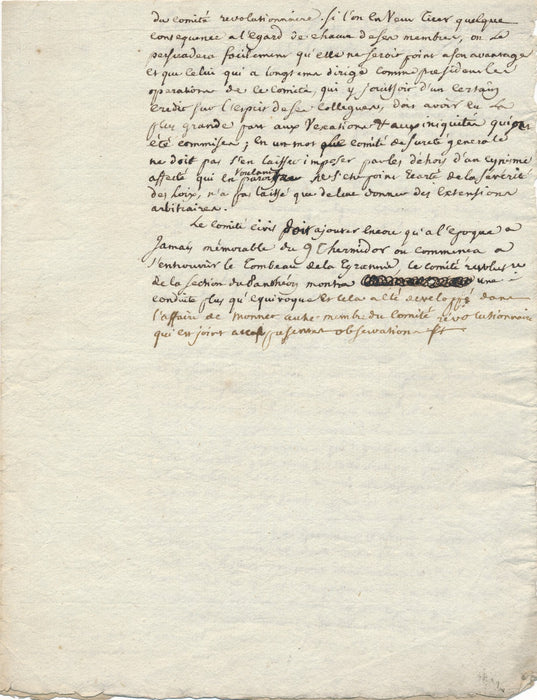 du comité revolutionnaire. si l'on en veut tirer quelque
consequence a l'egard de chacun de ses membres, on se
persuadera facilement qu'elle ne seroit point a son avantage
et que celui qui a longtems dirigé comme president les
operations de ce comité, qui y jouissoit d'un certain
credit sur l'esprit de ses collegues, dois avoir eu la
plus grande part aux vexations & aux iniquités qui ont
été commises; En un mot que comité de sureté generale
ne doit pas s'en laisser imposer par les dehors d'un cynisme
affecté qui en voulant paroitre ne s'etre point ecarté de la séverité
des loix, n'a fait que de leur donner des extensions
arbitraires.
Le comité civil doit ajouter encore qu'a l'epoque a
Jamais mémorable du 9 Thermidor ou commenca a
s'entrouvrir le Tombeau de la Tyrannie, le comité revolure
de la section du Panthéon montra une
conduite plus qu'équivoque et cela a été developpé dans
l'affaire de Monnet autre membre du comité révolutionnaire
qui est joint aux presentes observations